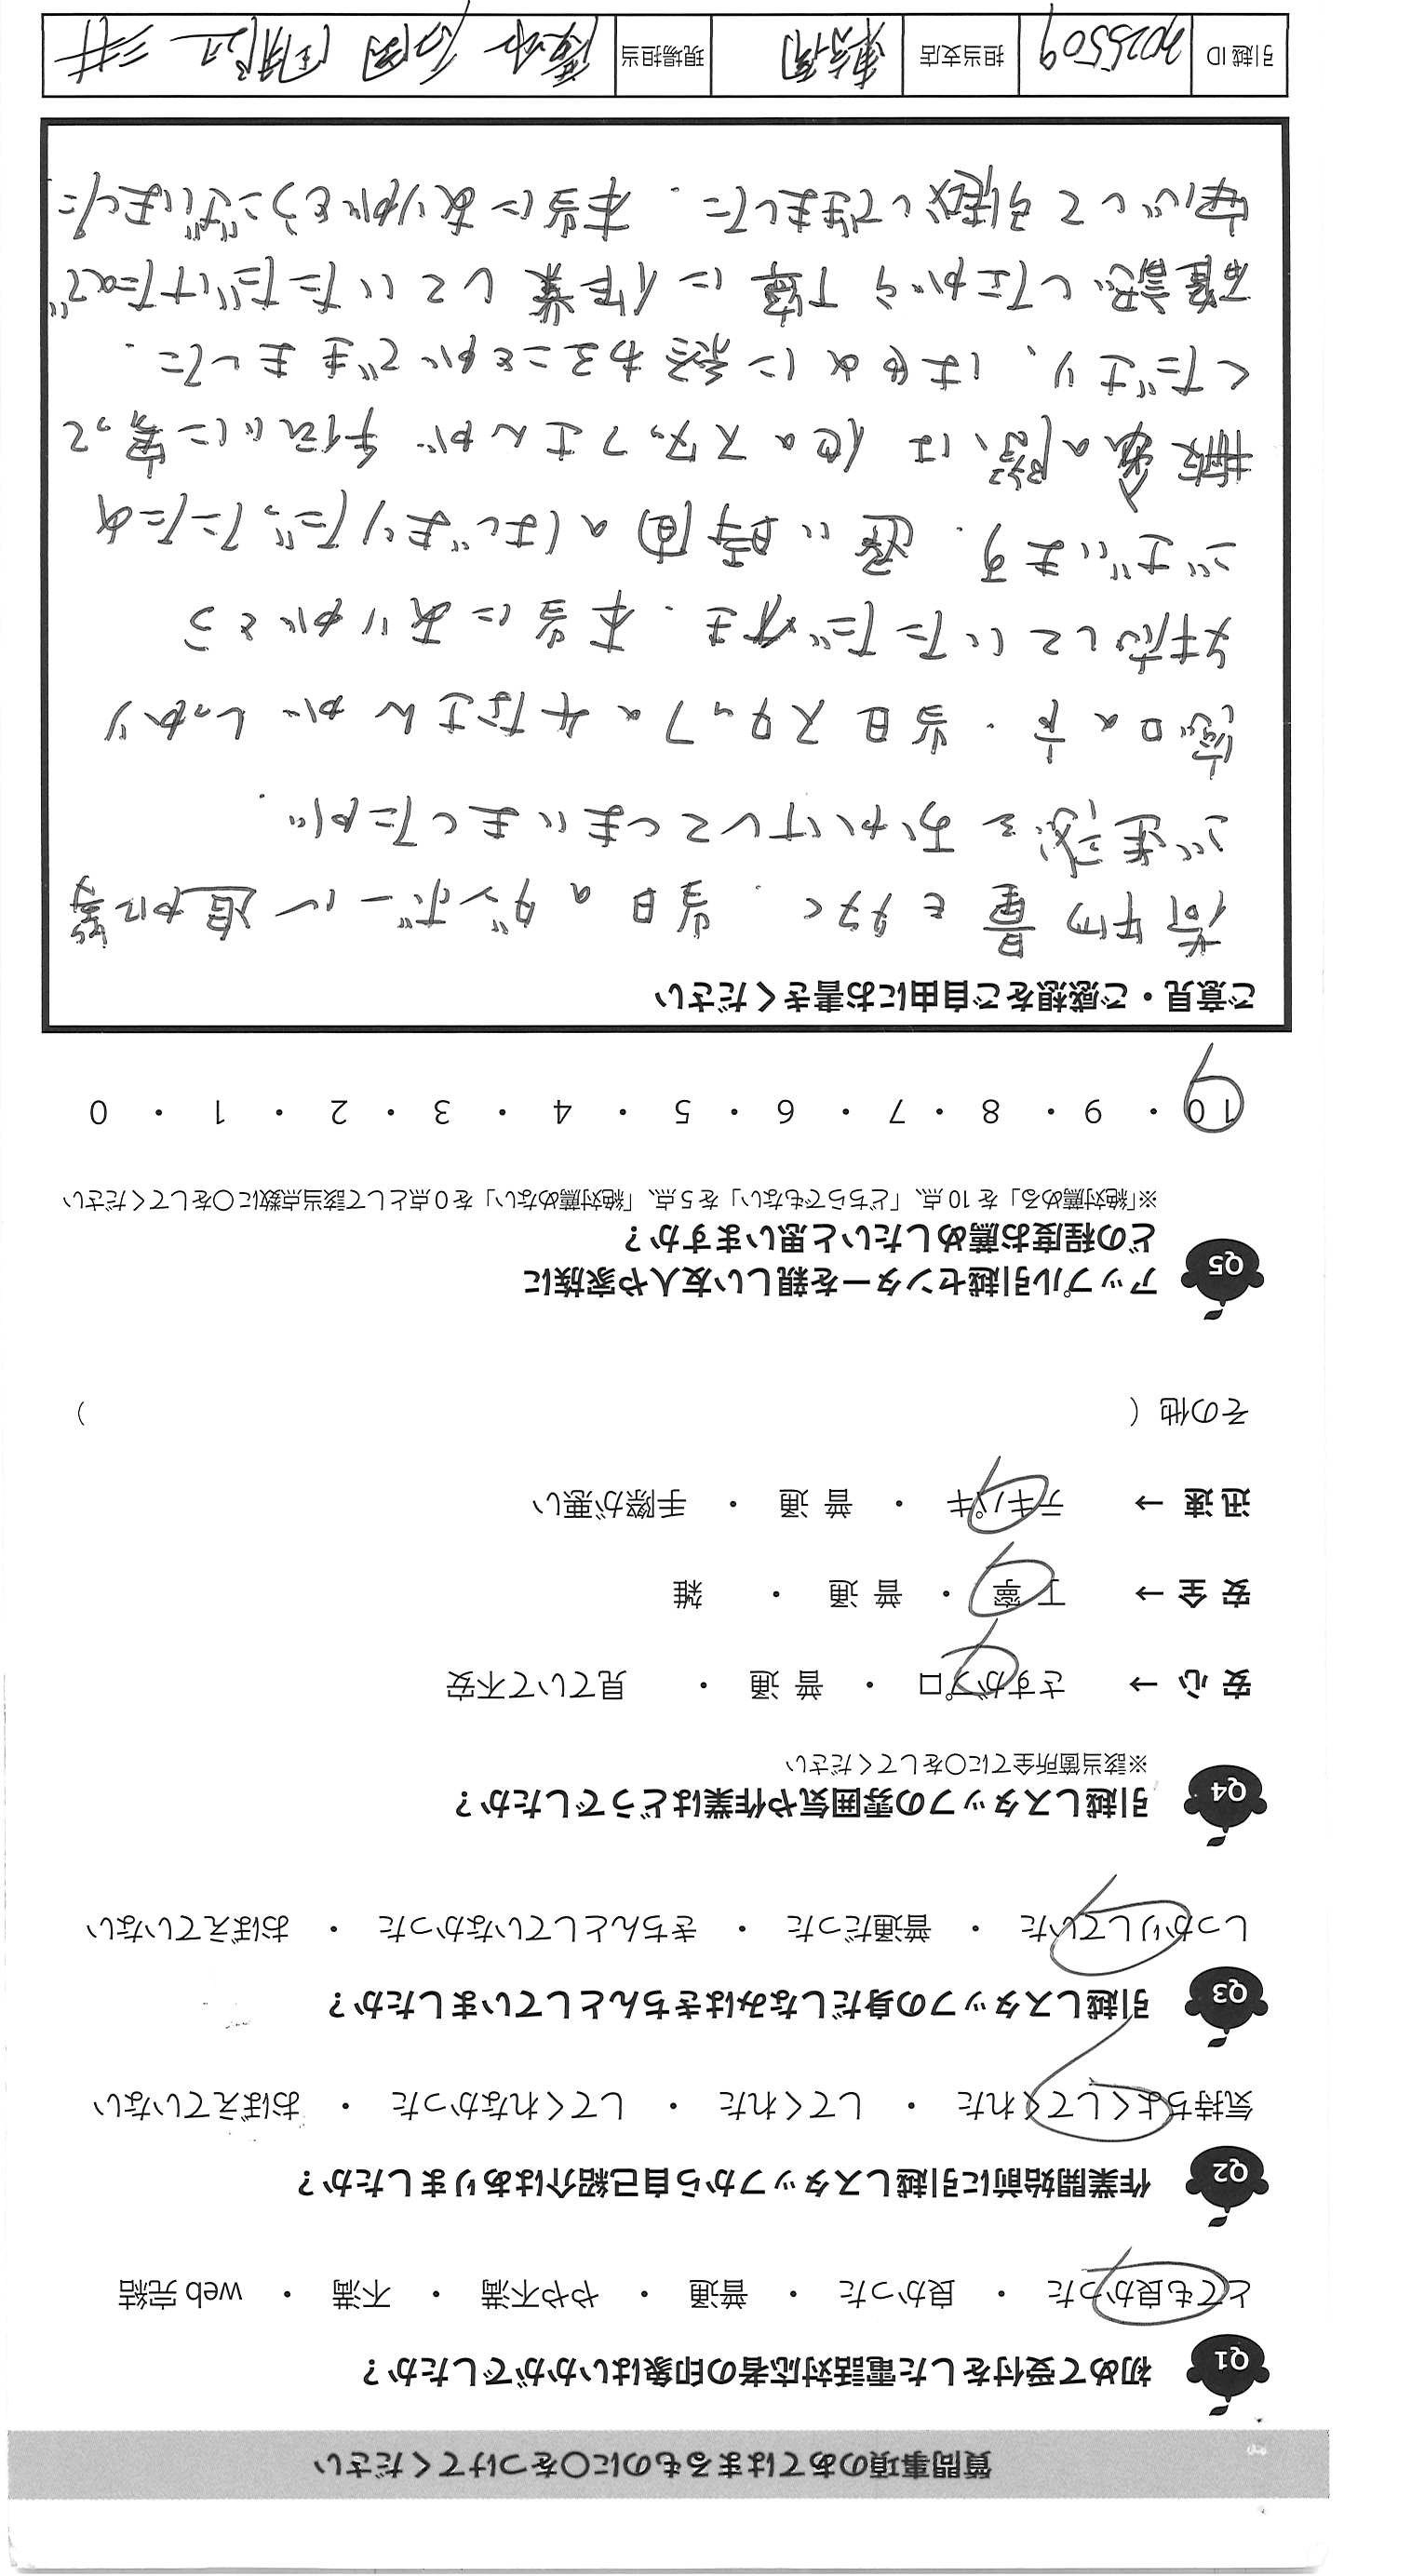 質問事項のあてはまるものに〇をつけてください
Q1 初めて受付をした電話対応者の印象はいかがでしたか？
とても良かった ・ 良かった ・ 普通 ・ やや不満 ・ 不満 ・ web 完結
Q2 作業開始前に引越しスタッフから自己紹介はありましたか？
気持ちよくしてくれた ・ してくれた ・ してくれなかった ・ おぼえていない
Q3 引越しスタッフの身だしなみはきちんとしていましたか？
しっかりしていた ・ 普通だった ・ きちんとしていなかった ・ おぼえていない
Q4 引越しスタッフの雰囲気や作業はどうでしたか？
※該当箇所全てに〇をしてください
安 心 → さすがプロ ・ 普 通 ・ 見ていて不安
安 全 → 丁 寧 ・ 普 通 ・ 雑
迅 速 → テキパキ ・ 普 通 ・ 手際が悪い
その他（ ）
Q5 アップル引越センターを親しい友人や家族に
どの程度お薦めしたいと思いますか？
※「絶対薦める」を 10 点、「どちらでもない」を 5 点、「絶対薦めない」を 0 点として該当点数に〇をしてください
10 ・ 9 ・ 8 ・ 7 ・ 6 ・ 5 ・ 4 ・ 3 ・ 2 ・ 1 ・ 0
ご意見・ご感想をご自由にお書きください
荷物量も多く、当日のダンボール追加等
ご迷惑をおかけしてしまいましたが、
窓口の方、当日スタッフのみなさんがしっかり
対応していただき、本当にありがとう
ございます。遅い時間のはじまりだったため
搬入の際は他のスタッフさんが手伝いに来って
くださり、はやめに終わることができました。
確認しながら丁寧に作業していただけたので
安心して引越しできました。本当にありがとうございました
引越 ID 2025509 担当支店 現場担当 石岡 三井